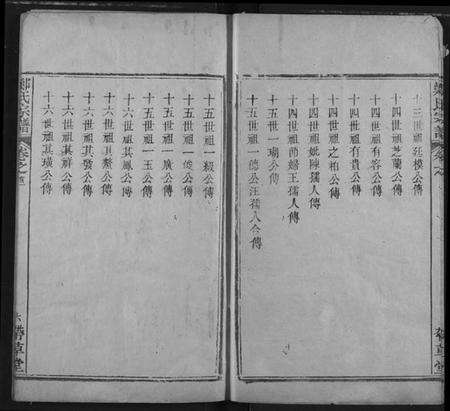 十三世祖廷模公傳
十四世祖芝蘭公傳
十四世祖有容公傳
十四世祖有貴公傳
十四世祖之柏公傳
十四世祖妣陳孺人傳
十四世祖節婦王孺人傳
十五世祖一瑚公傳
十五世祖一德公汪孺人合傳
十五世祖一緞公傳
十五世祖一俊公傳
十五世祖一廣公傳
十五世祖一玉公傳
十六世祖其鳳公傳
十六世祖其鰲公傳
十六世祖其敬公傳
十六世祖其祥公傳
十六世祖其璜公傳
鄭氏宗譜
卷之首
六
帶草堂